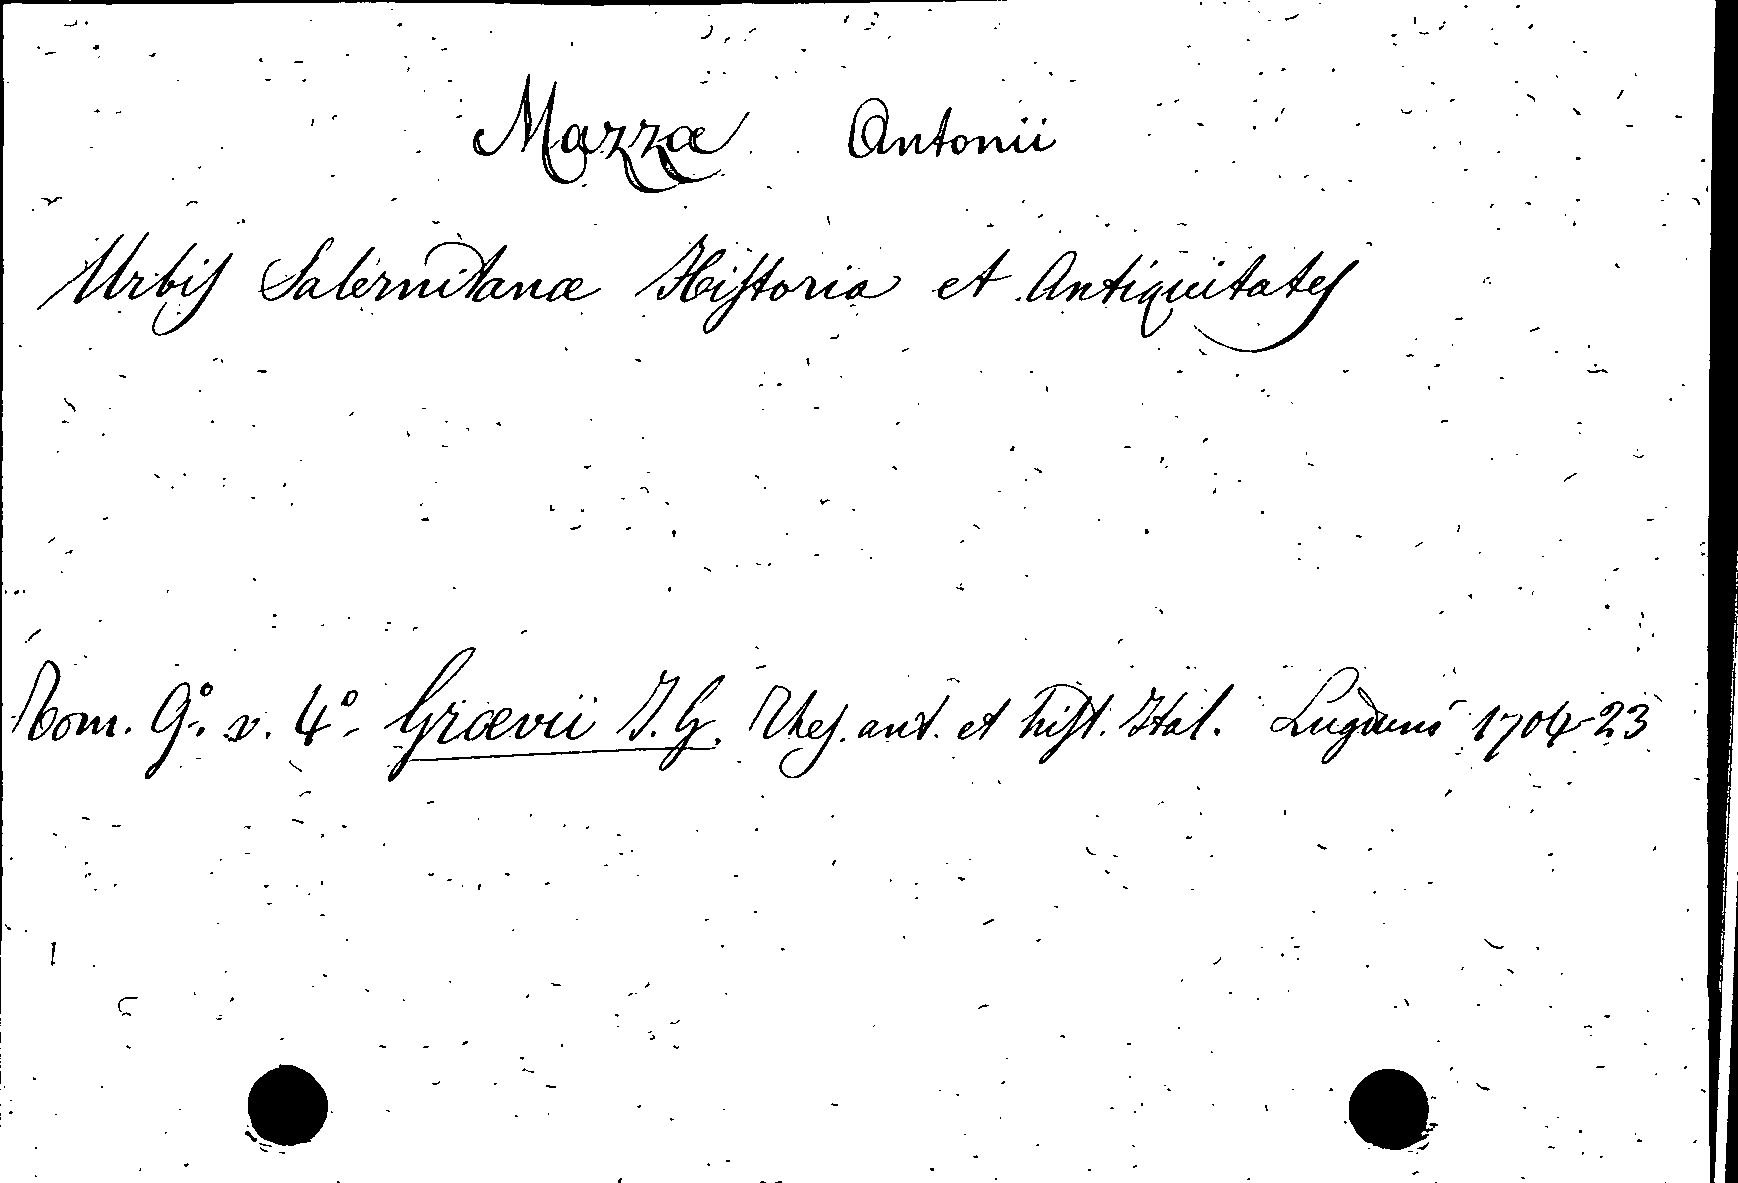 Mazzæ Antonii
Urbis Salernitanæ Historia et Antiquitates
Tom. 9º. v. 4º. Grævii J. G. Thes. ant. et hist. Ital. Lugduni 1704-23